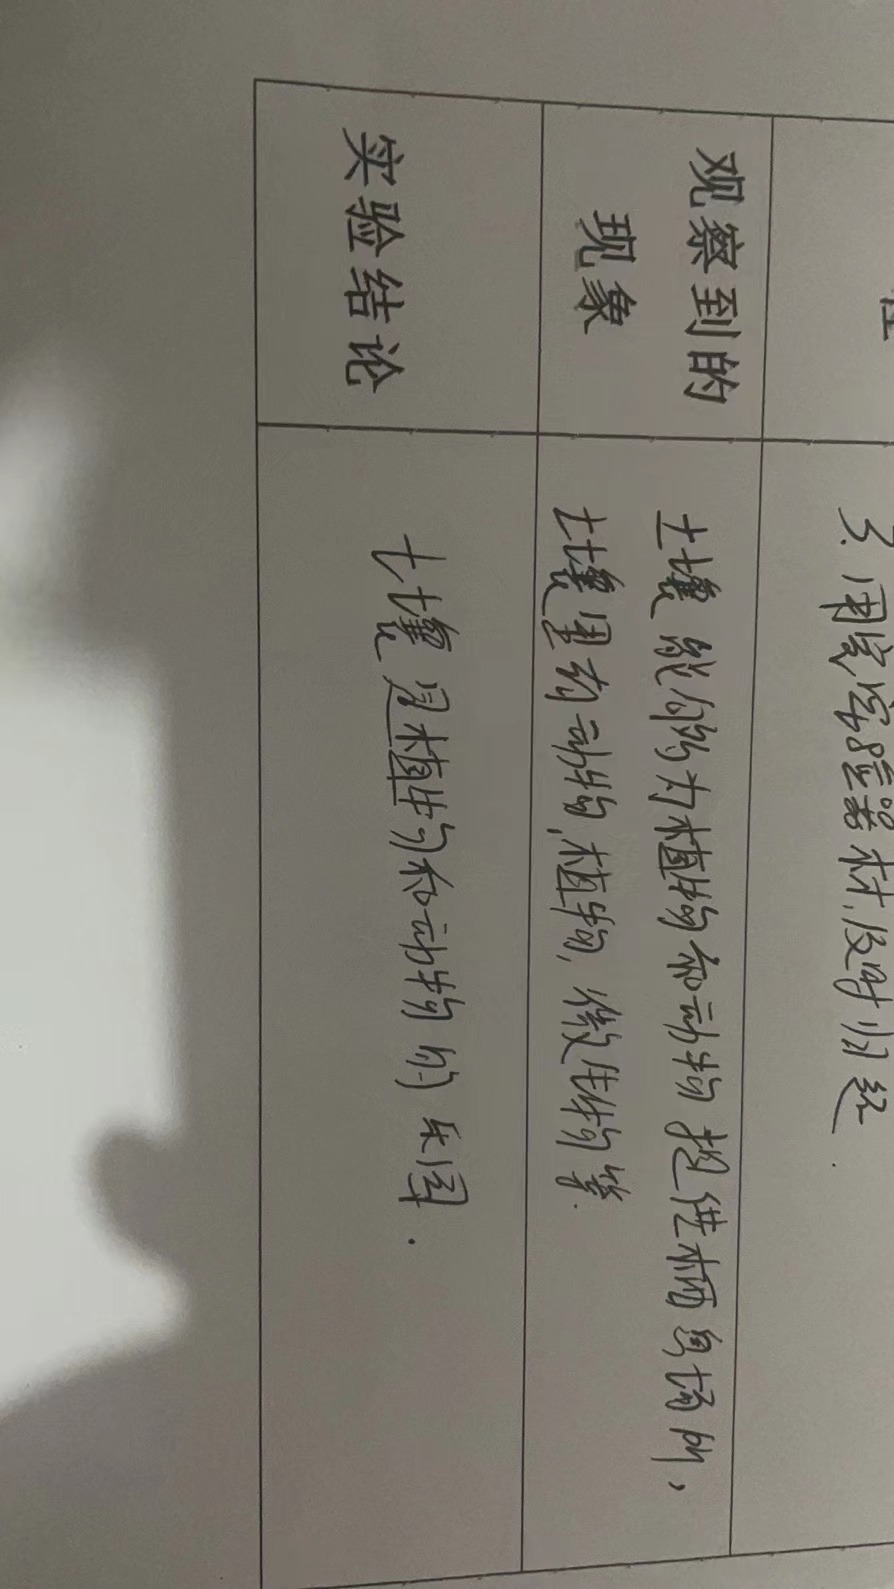 3.用完实验器材,及时归还.
观察到的
现象
土壤能够为植物和动物提供栖身场所,
土壤里有动物,植物,微生物等.
实验结论
土壤是植物和动物的乐园.